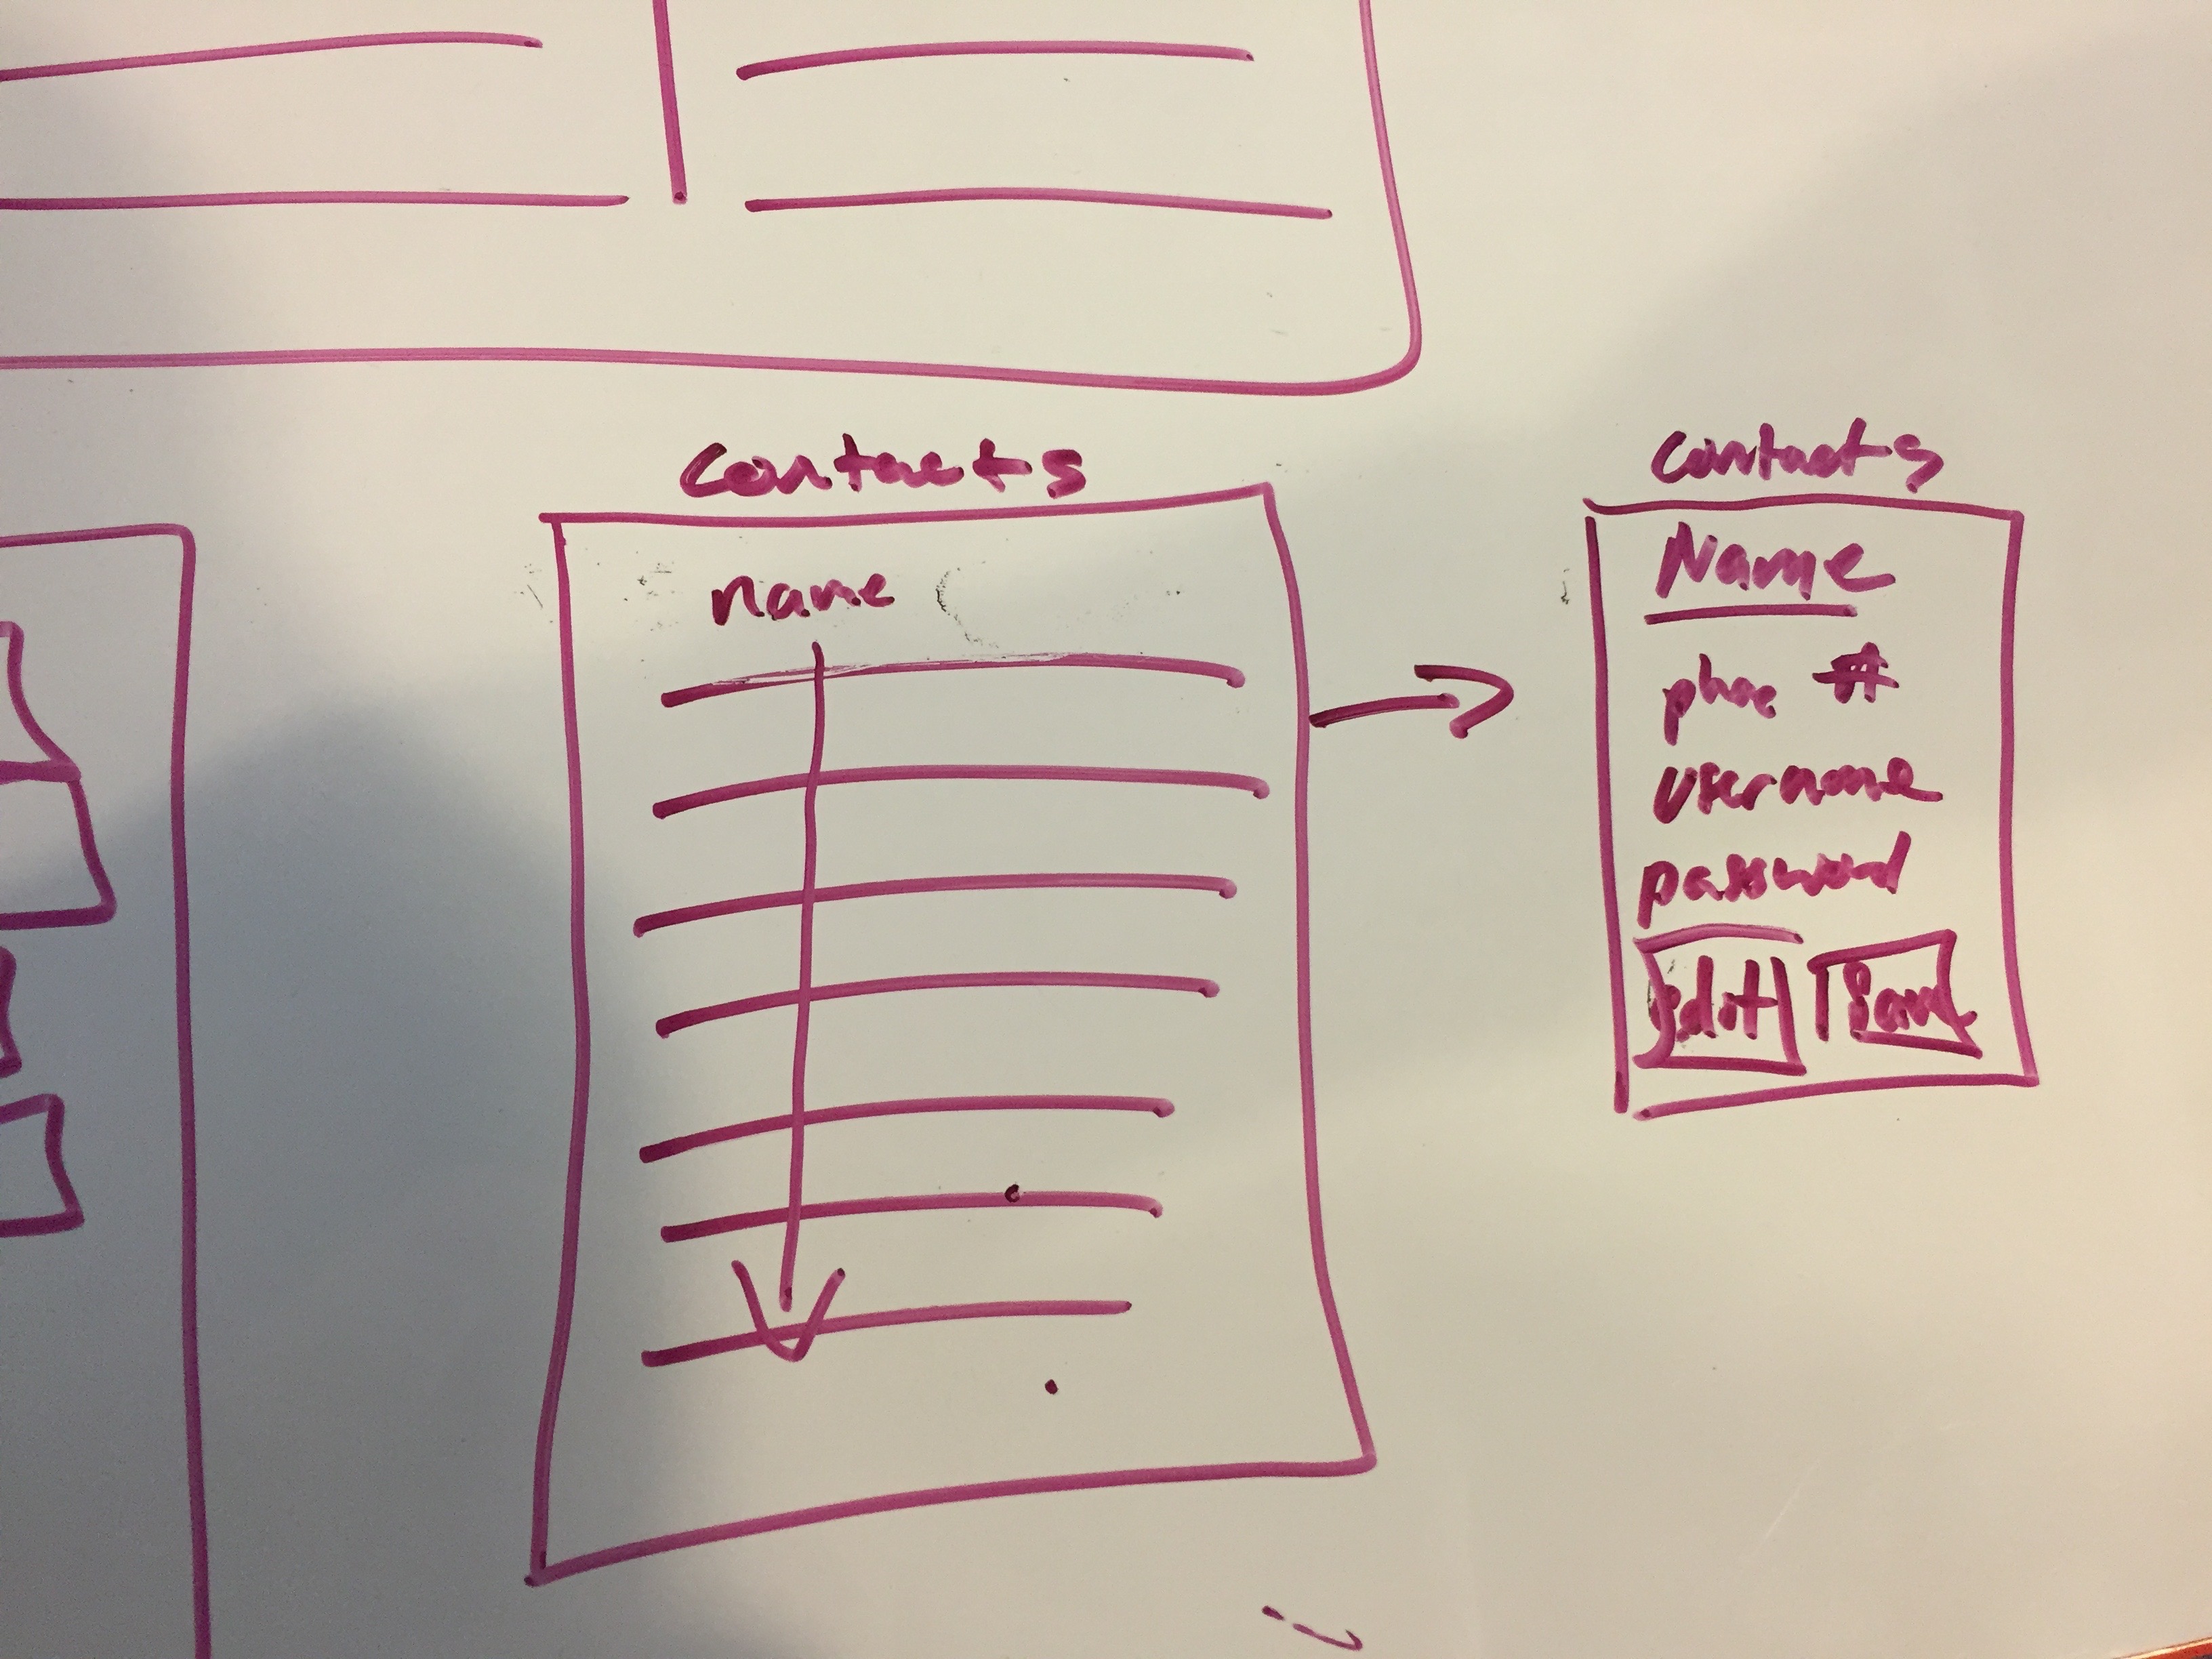 Contacts
name
Contacts
Name
phone #
username
password
Edit Save